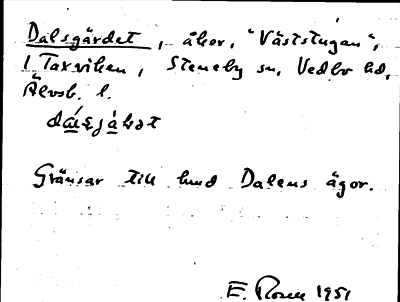 Dalsgärdet, åker, "Väststugan",
1 Taxviken, Steneby sn, Vedbo hd,
Älvsb. l.
Gränsar till hmd Dalens ägor.
E. Rosell 1951